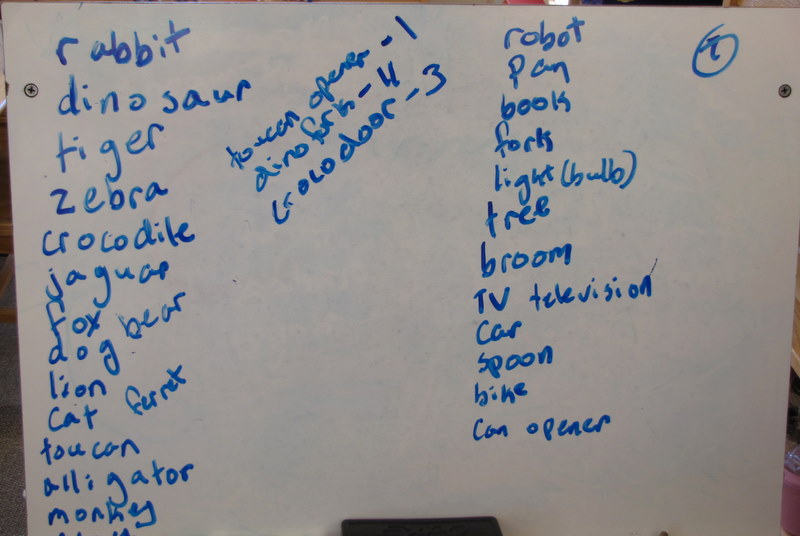 rabbit
dinosaur
tiger
zebra
crocodile
jaguar
fox
dog bear
lion
cat ferret
toucan
alligator
monkey
toucan opener - 1
dinofork - 4
crocodoor - 3
robot
pan
book
fork
light (bulb)
tree
broom
TV television
car
spoon
bike
can opener